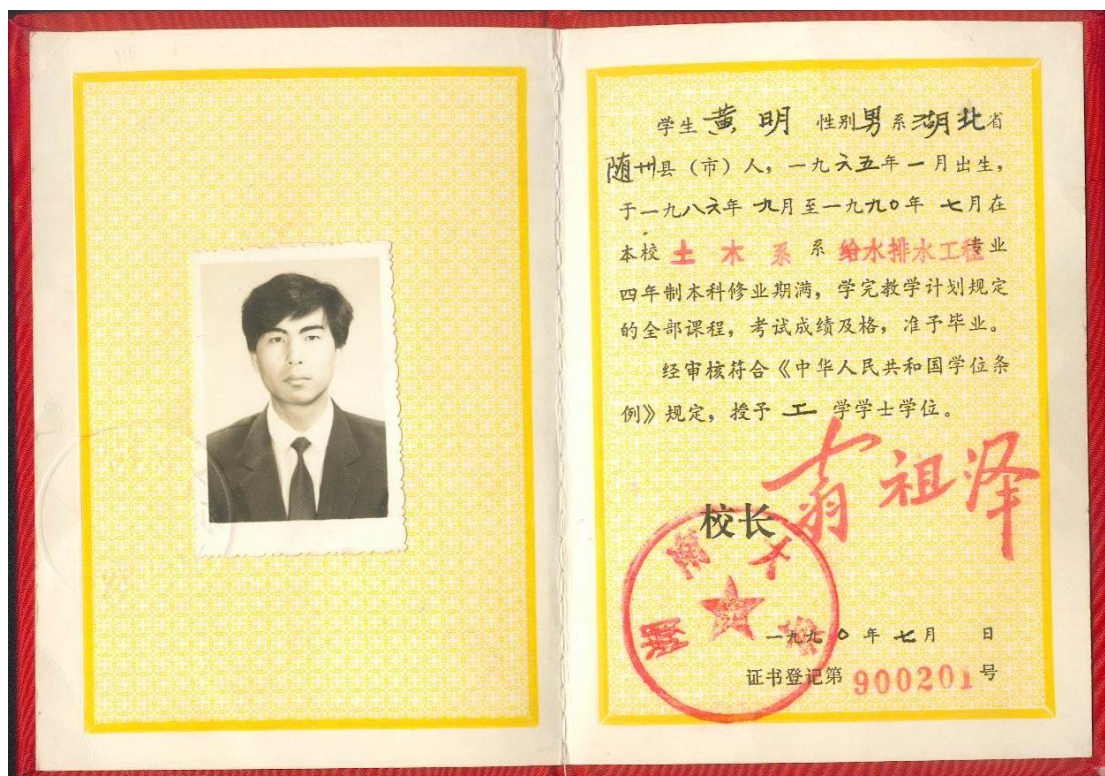 学生 黄明 性别 男 系 湖北 省
随州 县（市）人，一九六五年一月出生，
于一九八六年 九月至一九九〇年 七月在
本校 土木系 系 给水排水工程 专业
四年制本科修业期满，学完教学计划规定
的全部课程，考试成绩及格，准予毕业。
经审核符合《中华人民共和国学位条
例》规定，授予 工 学学士学位。
校长 翁祖泽
湖南大学
一九九〇年七月 日
证书登记第 900201 号